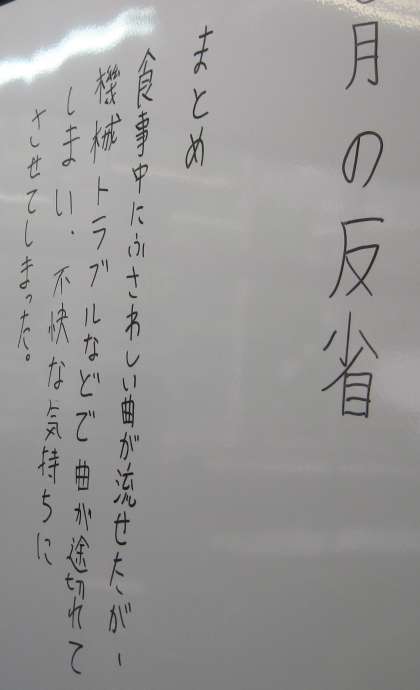 月の反省
まとめ
食事中にふさわしい曲が流せたが、
機械トラブルなどで曲が途切れて
しまい、不快な気持ちに
させてしまった。